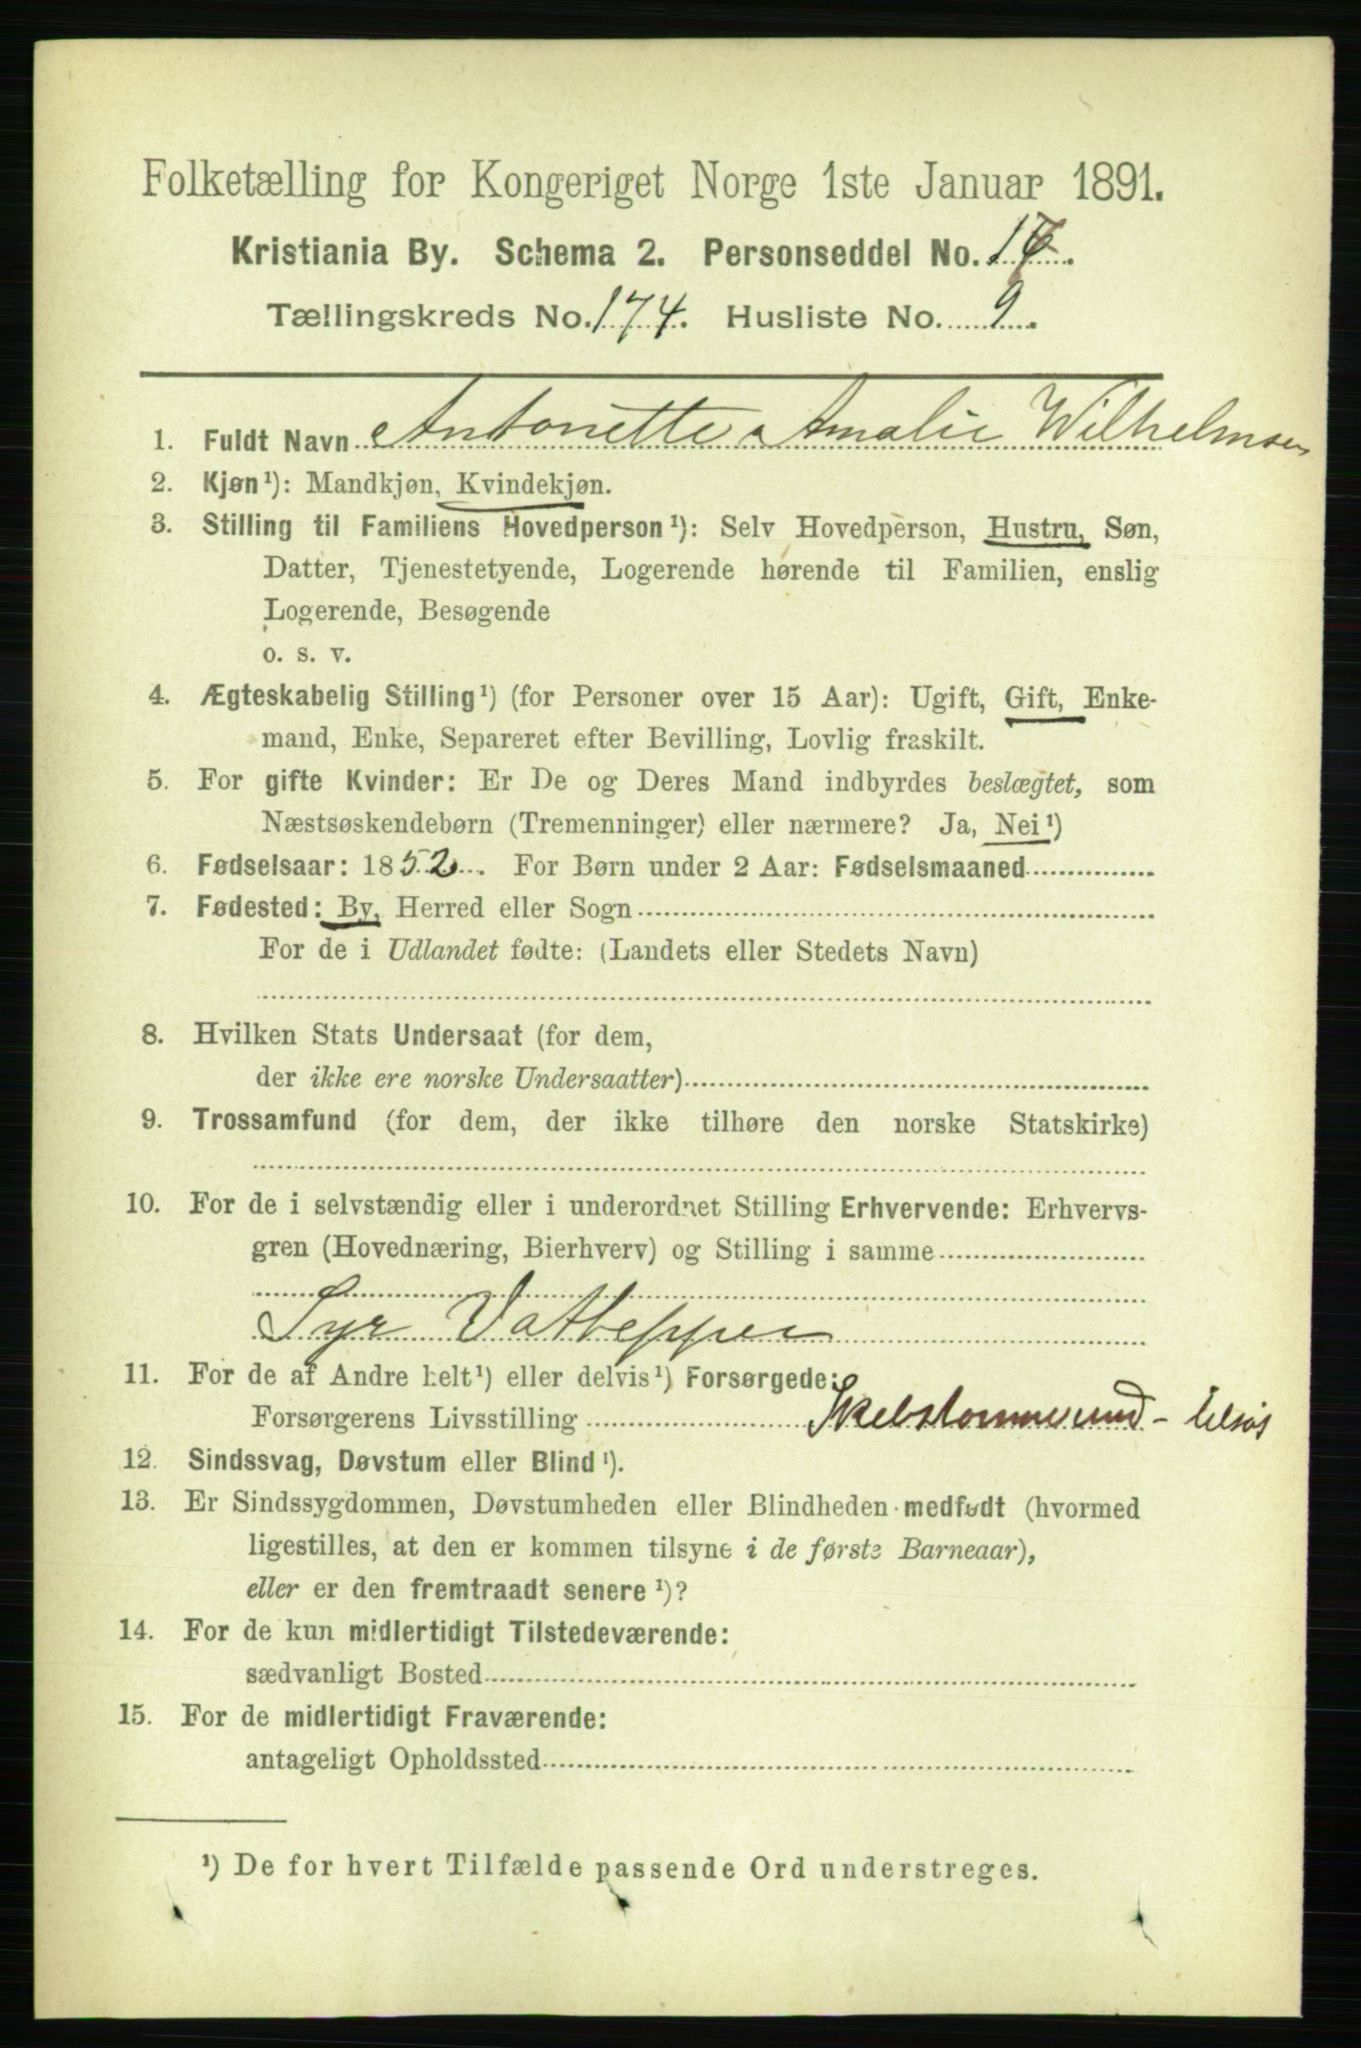 Folketælling for Kongeriget Norge 1ste Januar 1891.
Kristiania By. Schema 2. Personseddel No. 17.
Tællingskreds No. 174. Husliste No. 9.
1. Fuldt Navn Antonette Amalie Wilhelmsen
2. Kjøn¹): Mandkjøn, Kvindekjøn.
3. Stilling til Familiens Hovedperson¹): Selv Hovedperson, Hustru, Søn,
Datter, Tjenestetyende, Logerende hørende til Familien, enslig
Logerende, Besøgende
o. s. v.
4. Ægteskabelig Stilling¹) (for Personer over 15 Aar): Ugift, Gift, Enke-
mand, Enke, Separeret efter Bevilling, Lovlig fraskilt.
5. For gifte Kvinder: Er De og Deres Mand indbyrdes beslægtet, som
Næstsøskendebørn (Tremenninger) eller nærmere? Ja, Nei¹)
6. Fødselsaar: 1852. For Børn under 2 Aar: Fødselsmaaned
7. Fødested: By, Herred eller Sogn
For de i Udlandet fødte: (Landets eller Stedets Navn)
8. Hvilken Stats Undersaat (for dem,
der ikke ere norske Undersaatter)
9. Trossamfund (for dem, der ikke tilhøre den norske Statskirke)
10. For de i selvstændig eller i underordnet Stilling Erhvervende: Erhvervs-
gren (Hovednæring, Bierhverv) og Stilling i samme
Syr Vattepper
11. For de af Andre helt¹) eller delvis¹) Forsørgede:
Forsørgerens Livsstilling
12. Sindssvag, Døvstum eller Blind¹).
13. Er Sindssygdommen, Døvstumheden eller Blindheden medfødt (hvormed
ligestilles, at den er kommen tilsyne i de første Barneaar),
eller er den fremtraadt senere¹)?
14. For de kun midlertidigt Tilstedeværende:
sædvanligt Bosted
15. For de midlertidigt Fraværende:
antageligt Opholdssted
¹) De for hvert Tilfælde passende Ord understreges.